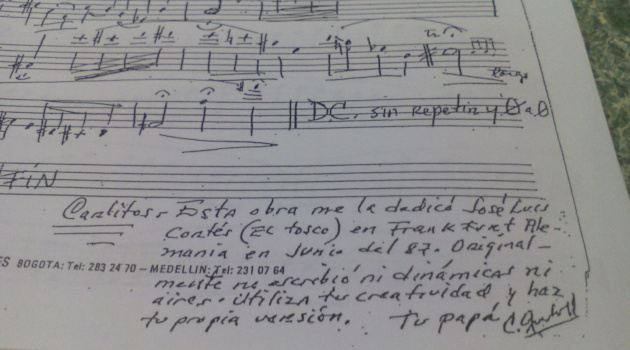 largo
DC. sin repetir y
FIN
Carlitos. Esta obra me la dedicó José Luis
Cortés (El Tosco) en Frankfurt Ale-
mania en Junio del 87. Original-
ES BOGOTA: Tel: 283 24 70 – MEDELLIN: Tel: 231 07 64
mente no escribió ni dinámicas ni
aires. Utiliza tu creatividad y haz
tu propia versión. Tu papá